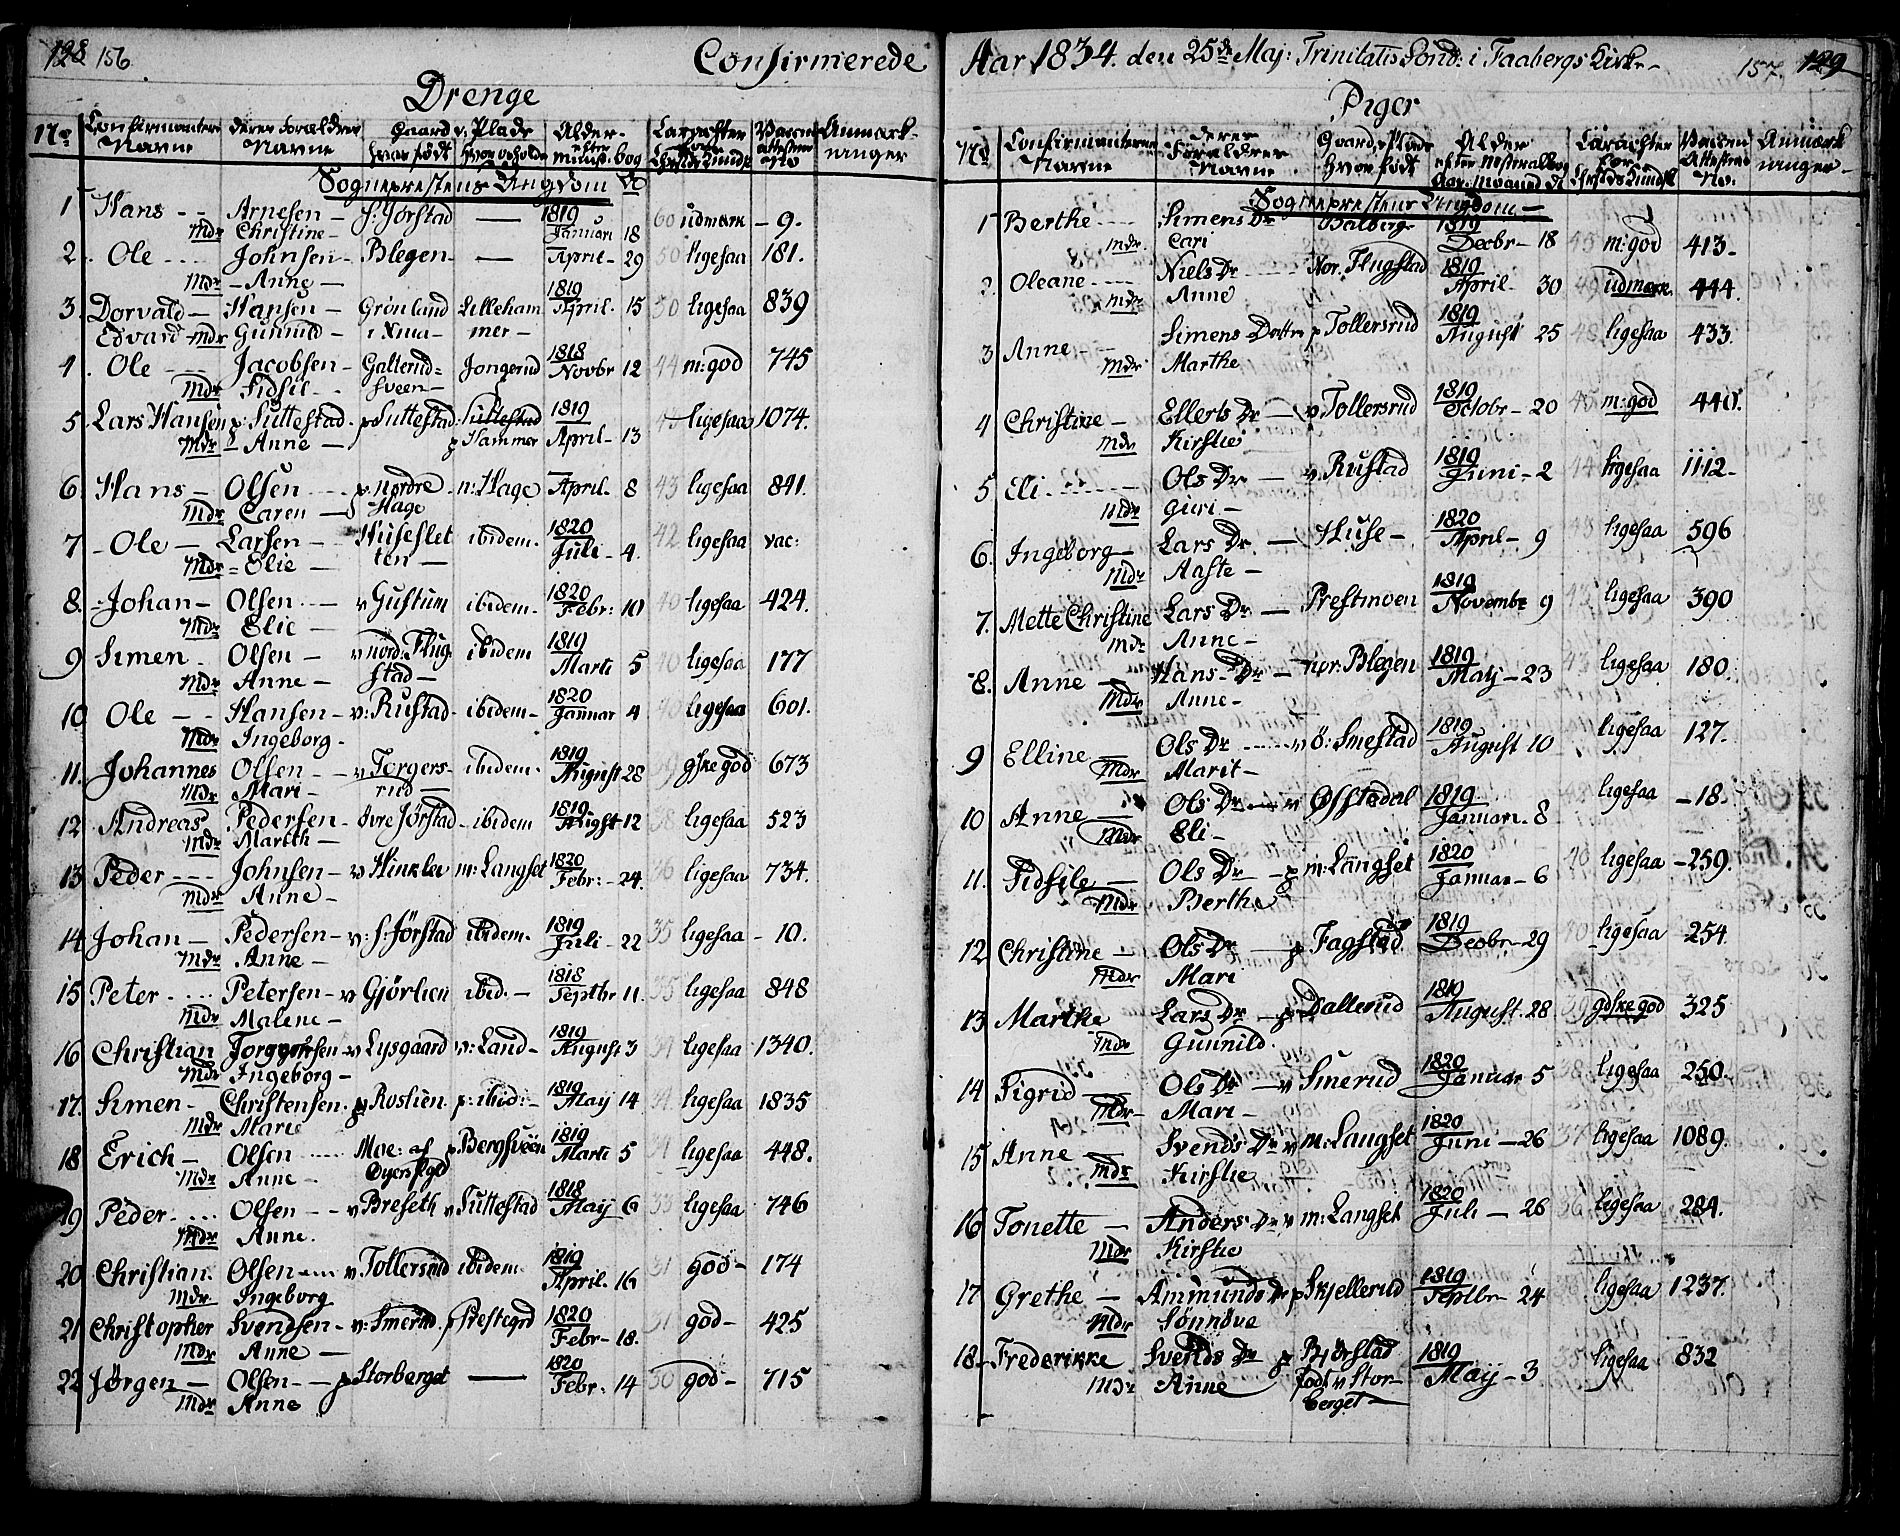 128 156
Confirmerede
Drenge
No Confirmanternes Navne deres Forældres Navne Gaard v: Plads hvor født hvor opholde Alder efter minist: bog Caracter for Christd: Kundsk: Vaccine attestens No Anmærkninger
Sognepræstens Ungdom
1 Hans Arnesen s: Jørstad 1819 Januari 18 60 udmærk 9.
Mdr Christine
2. Ole Johnsen Blegen April 29 50 ligesaa 181.
Mdr Anne
3. Dorvald Hansen Grønland Lilleham 1819 April. 15 50 ligesaa 839
Edvard Mdr Gunnild mer
4. Ole Jacobsen Galterud= Jongerud 1818 Novbr 12 44 m: god 745
Mdr Sidsil sveen
5. Lars Hansen p: Suttestad p Suttestad Suttestad 1819 ligesaa 1074.
Mdr Anne p Hammer April 13
6 Hans Olsen p nordre n: Hage April 8 43 ligesaa 841.
Mdr Caren Hage
7 Ole Larsen Huseslet ibidem. 1820 Juli 4. 42 ligesaa vac:
Mdr Elie ten
8. Johan Olsen v Gustum ibidem. 1820 Febr: 10 40 ligesaa 424.
Mdr Elie
9 Simen Olsen v nord: Flug ibidem 1819 Marti 5 40 ligesaa 177
Mdr Anne stad
10 Ole Hansen v: Rustad ibidem 1820 Januar 4 40 ligesaa 601.
Mdr Ingeborg
11. Johannes Olsen v Torgers ibidem. 1819 August 28 39 gske god 673
Mdr Mari rud
12 Andreas Pedersen øvre Jørstad ibidem 1819 August 12 38 ligesaa 523
Mdr Marith
13 Peder Johnsen v Hinklev m: Langset 1820 Febr: 24. 36 ligesaa 734.
Mdr Anne
14 Johan Pedersen v: s: Jørstad ibidem. 1819 Juli 22 35 ligesaa 10.
Mdr Anne
15 Peter Petersen v Gjørlien ibid. 1818 Septbr 11. 35 ligesaa 848
Mdr Malene
16 Christian Torgersen v Lysgaard v: Land 1819 August 3 34 ligesaa 1340.
Mdr Ingeborg
17. Simen Christensen p Roslien p: ibid: 1819 May 14 34 ligesaa 1835
Mdr Marie
18 Erich Olsen Moe: af p Bergsveen 1819 Marti 5 34 ligesaa 448.
Mdr Anne Øyer Pgd
19 Peder Olsen v Breseth v Suttestad 1818 May 6 33 ligesaa 746
Mdr Anne.
20 Christian Olsen v Tollersrud ibidem 1819 April. 16 31 god 174
Mdr Ingeborg
21 Christopher Svendsen v: Smerud p Prestegrd 1820 Febr 18. 31 god 425
Mdr Anne
22 Jørgen Olsen p Storberget 1820 Febr: 14 30 god 715
Mdr Anne
Aar 1834. den 25de Maj: Trinitatis Sønd: i Faabergs Kirke 157. 129
Piger
No Confirmanternes Navne deres Forældres Navne Gaard, Plads hvor født Alder efter Ministerialbog Aar Maaned d: Caracter for Christd: Kundsk: Vaccine Attestens No. Anmærkninger
Sognepræstens Ungdom
1 Berthe Simens Dr Balberg 1819 Decbr 18 m: god 413
Mdr. Cari
2 Oleane Niels Dr Nor. Flugstad 1819 April 30 49 udmærk. 444.
Mdr Anne
3 Anne Simens Dattr p Tollersrud 1819 August 25 48 ligesaa 433.
Mdr Marthe
4 Christine Ellerts Dr v Tollersrud 1819 Octobr 20 45 m: god 440.
Mdr Kirstie
5 Eli Ols Dr v Rustad 1819 Juni 2 44 ligesaa 1112
Mdr Guri
6. Ingeborg Lars Dr Huse 1820 April 9 43 ligesaa 596
Mdr Aaste
7. Mette Christine Lars Dr Prestmoen 1819 Novembr 9 43 ligesaa 390
Mdr Anne
8. Anne Hans Dr nor. Blegen 1819 May 23 43 ligesaa 180.
Mdr Anne
9 Elline Ols Dr v ø: Smestad 1819 August 10 ligesaa 127.
Mdr Marit
10 Anne Ols Dr v Øfstedal 1819 Januari. 8 ligesaa 18.
Mdr Eli
11. Sidsile Ols Dr p m: Langset 1820 Januar 6 40 ligesaa 259.
Mdr Berthe
12 Christine Ols Dr p Fagstad 1819 Decbr 29 40 ligesaa 254.
Mdr Mari
13 Marthe Lars Dr p Dallerud 1819 August. 28 39 gdske god 325
Mdr Gunnild.
14 Sigrid Ols Dr v Smerud 1820 Januar 5 38 ligesaa 250
Mdr Mari
15 Anne Svends Dr v m: Langset 1820 Juni 26 37 ligesaa 1089.
Mdr Kirstie
16 Tonette Anders Dr v m: Langset 1820 Juli 26 36 ligesaa 284.
Mdr Kirstie
17 Grethe Ammunds Dr p Skjellerud 1819 Septbr 24 ligesaa 1237.
Mdr Sønnøve
18. Frederikke Svends Dr p Bjørstad 1819 May 3 35 ligesaa 832
Mdr Anne født v Stor
berget